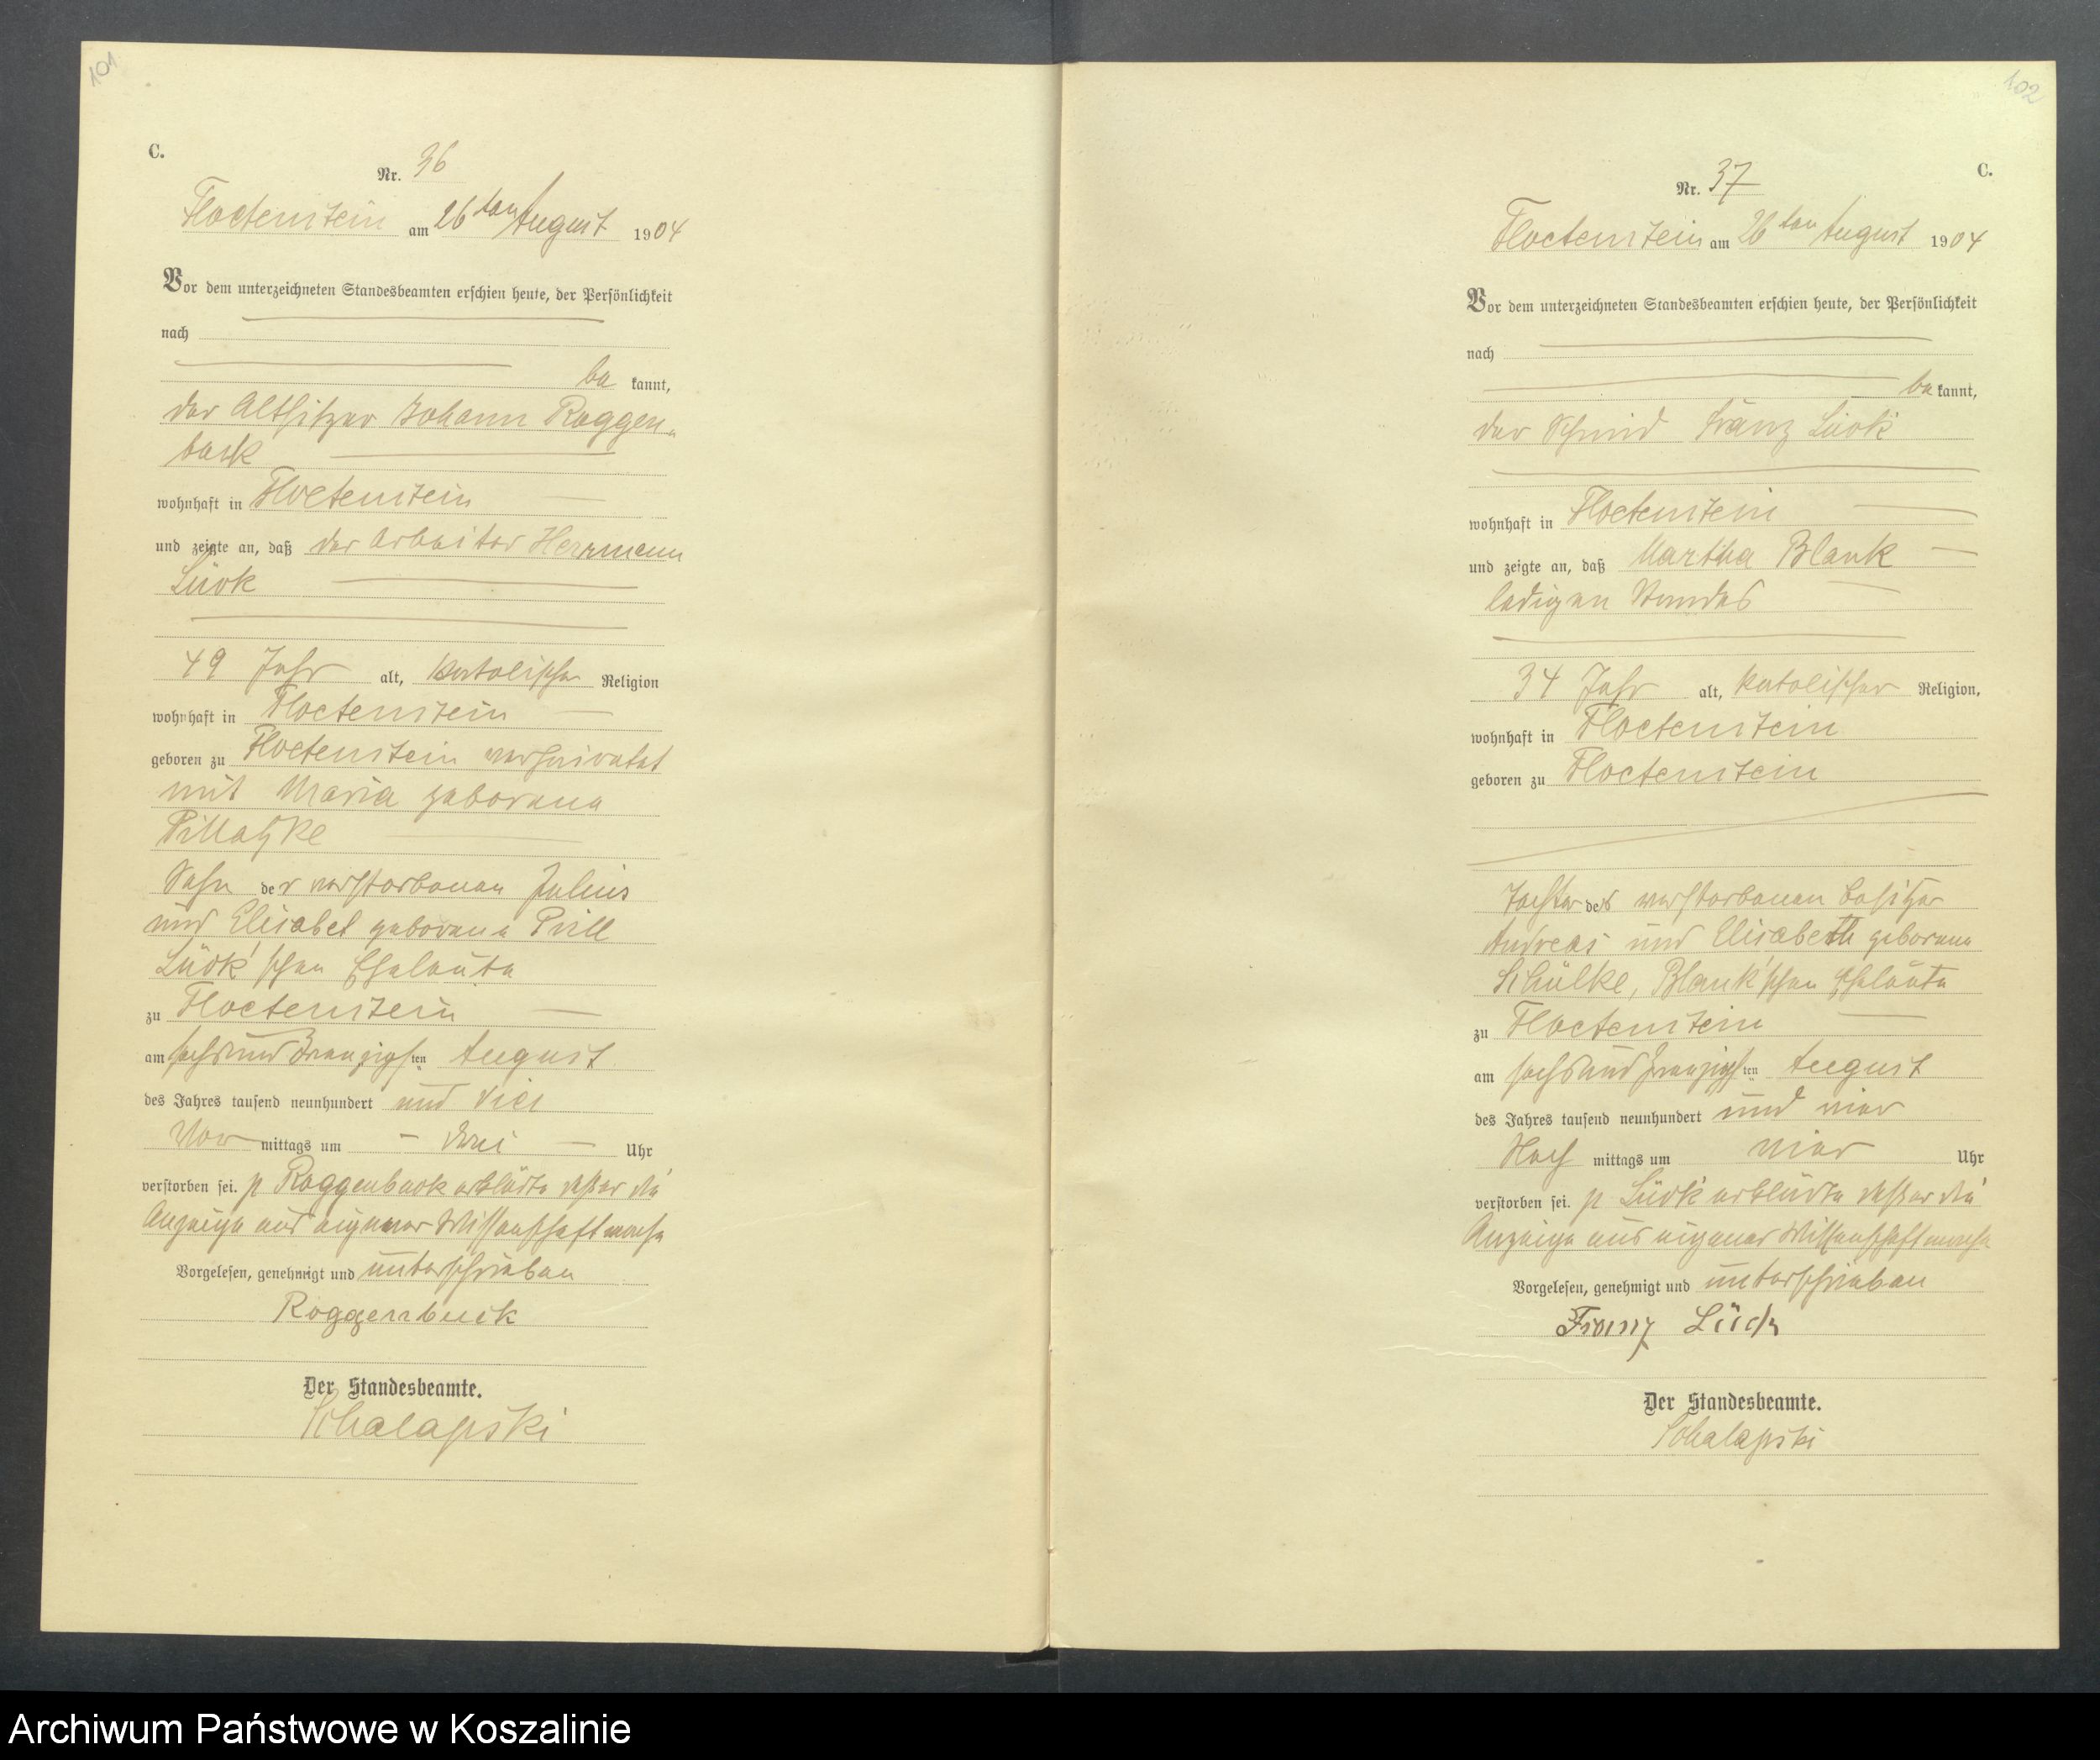 101
C.
Nr. 36
Floetenstein am 26ten August 1904
Vor dem unterzeichneten Standesbeamten erschien heute, der Persönlichkeit
nach
be kannt,
der Altsitzer Johann Roggen-
buck
wohnhaft in Floetenstein
und zeigte an, daß der Arbeiter Herrmann
Lück
49 Jahr alt, katolischer Religion
wohnhaft in Floetenstein
geboren zu Floetenstein verheiratet
mit Maria geborene
Pillatzke
Sohn der verstorbenen Julius
und Elisabet geborene Prill
Lück'schen Eheleute
zu Floetenstein
am sechsundzwanzigsten August
des Jahres tausend neunhundert und vier
Vor mittags um drei Uhr
verstorben sei. p Roggenbuck erklärte daß er die
Anzeige aus eigener Wissenschaft mache
Vorgelesen, genehmigt und unterschrieben
Roggenbuck
Der Standesbeamte.
Schalapski
102
C.
Nr. 37
Floetenstein am 26ten August 1904
Vor dem unterzeichneten Standesbeamten erschien heute, der Persönlichkeit
nach
be kannt,
der Schmid Franz Lück
wohnhaft in Floetenstein
und zeigte an, daß Martha Blank
ledigen Standes
34 Jahr alt, katolischer Religion,
wohnhaft in Floetenstein
geboren zu Floetenstein
Tochter des verstorbenen Besitzer
Andreas und Elisabeth geborene
Schülke, Blank'schen Eheleute
zu Floetenstein
am sechsundzwanzigsten August
des Jahres tausend neunhundert und vier
Nach mittags um vier Uhr
verstorben sei. p Lück erklärte daß er die
Anzeige aus eigener Wissenschaft mache
Vorgelesen, genehmigt und unterschrieben
Franz Lück
Der Standesbeamte.
Schalapski
Archiwum Państwowe w Koszalinie